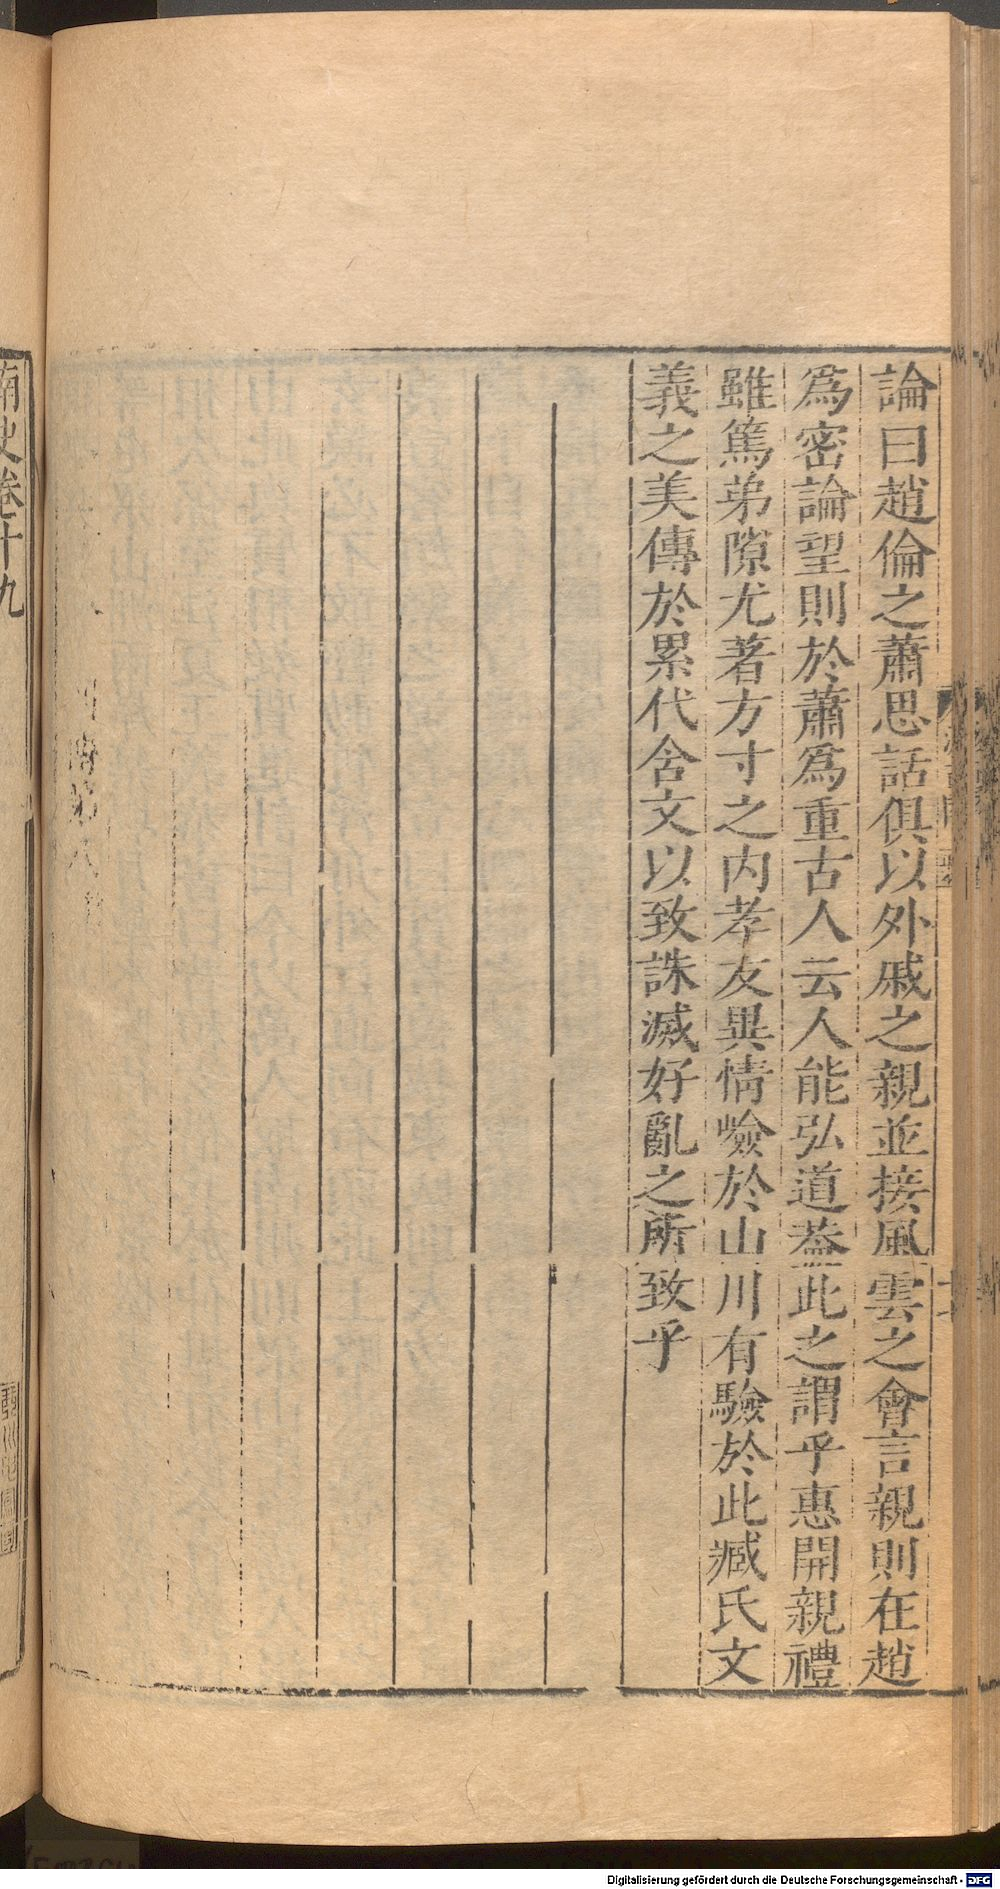 論曰趙倫之蕭思話俱以外戚之親並接風雲之會言親則在趙
爲密論望則於蕭爲重古人云人能弘道葢此之謂乎惠開親禮
雖篤弟隙尤著方寸之内孝友異情嶮於山川有驗於此臧氏文
義之美傳於累代含文以致誅滅好亂之所致乎
南史卷十九
Digitalisierung gefördert durch die Deutsche Forschungsgemeinschaft - DFG